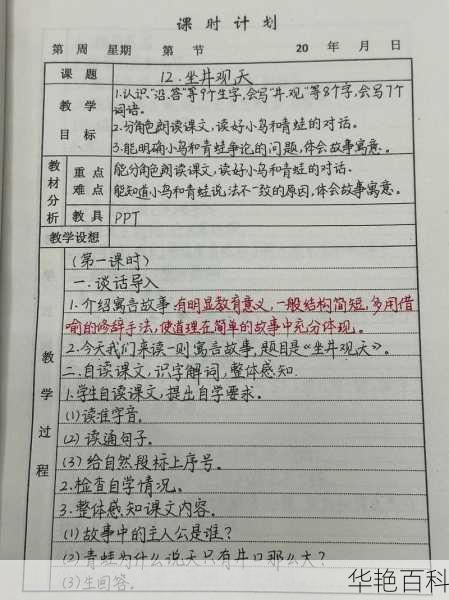 课时计划
第 周 星期 第 节 20 年 月 日
课题 12.坐井观天
教学目标 1.认识“沿、答”等9个生字,会写“井、观”等8个字,会写7个
词语。
2.分角色朗读课文,读好小鸟和青蛙的对话。
3.能明确小鸟和青蛙争论的问题,体会故事寓意。
教材分析 重点 能分角色朗读课文,读好小鸟和青蛙的对话。
难点 能知道小鸟和青蛙说法不一致的原因,体会故事寓意。
教具 PPT
教学设想
教学过程
(第一课时)
一.谈话导入
1.介绍寓言故事:有明显教育意义,一般结构简短,多用借
喻的修辞手法,使道理在简单的故事中充分体现。
2.今天我们来读一则寓言故事,题目是《坐井观天》。
二.自读课文,识字解词,整体感知.
1.学生自读课文,提出自学要求。
(1)读准字音。
(2)读通句子。
(3)给自然段标上序号。
2.检查自学情况。
3.整体感知课文内容。
(1)故事中的主人公是谁?
(2)青蛙为什么说天只有井口那么大?
(3)生回答。
华艳百科